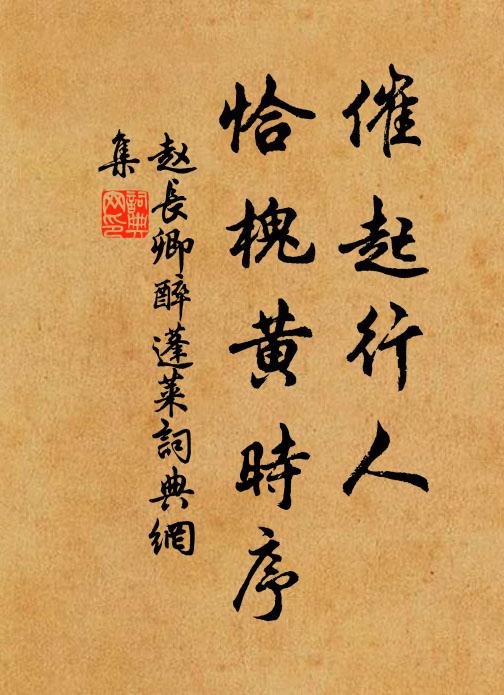 催起行人
恰槐黄時序
赵長卿醉蓬莱詞典網
集
詞典网印